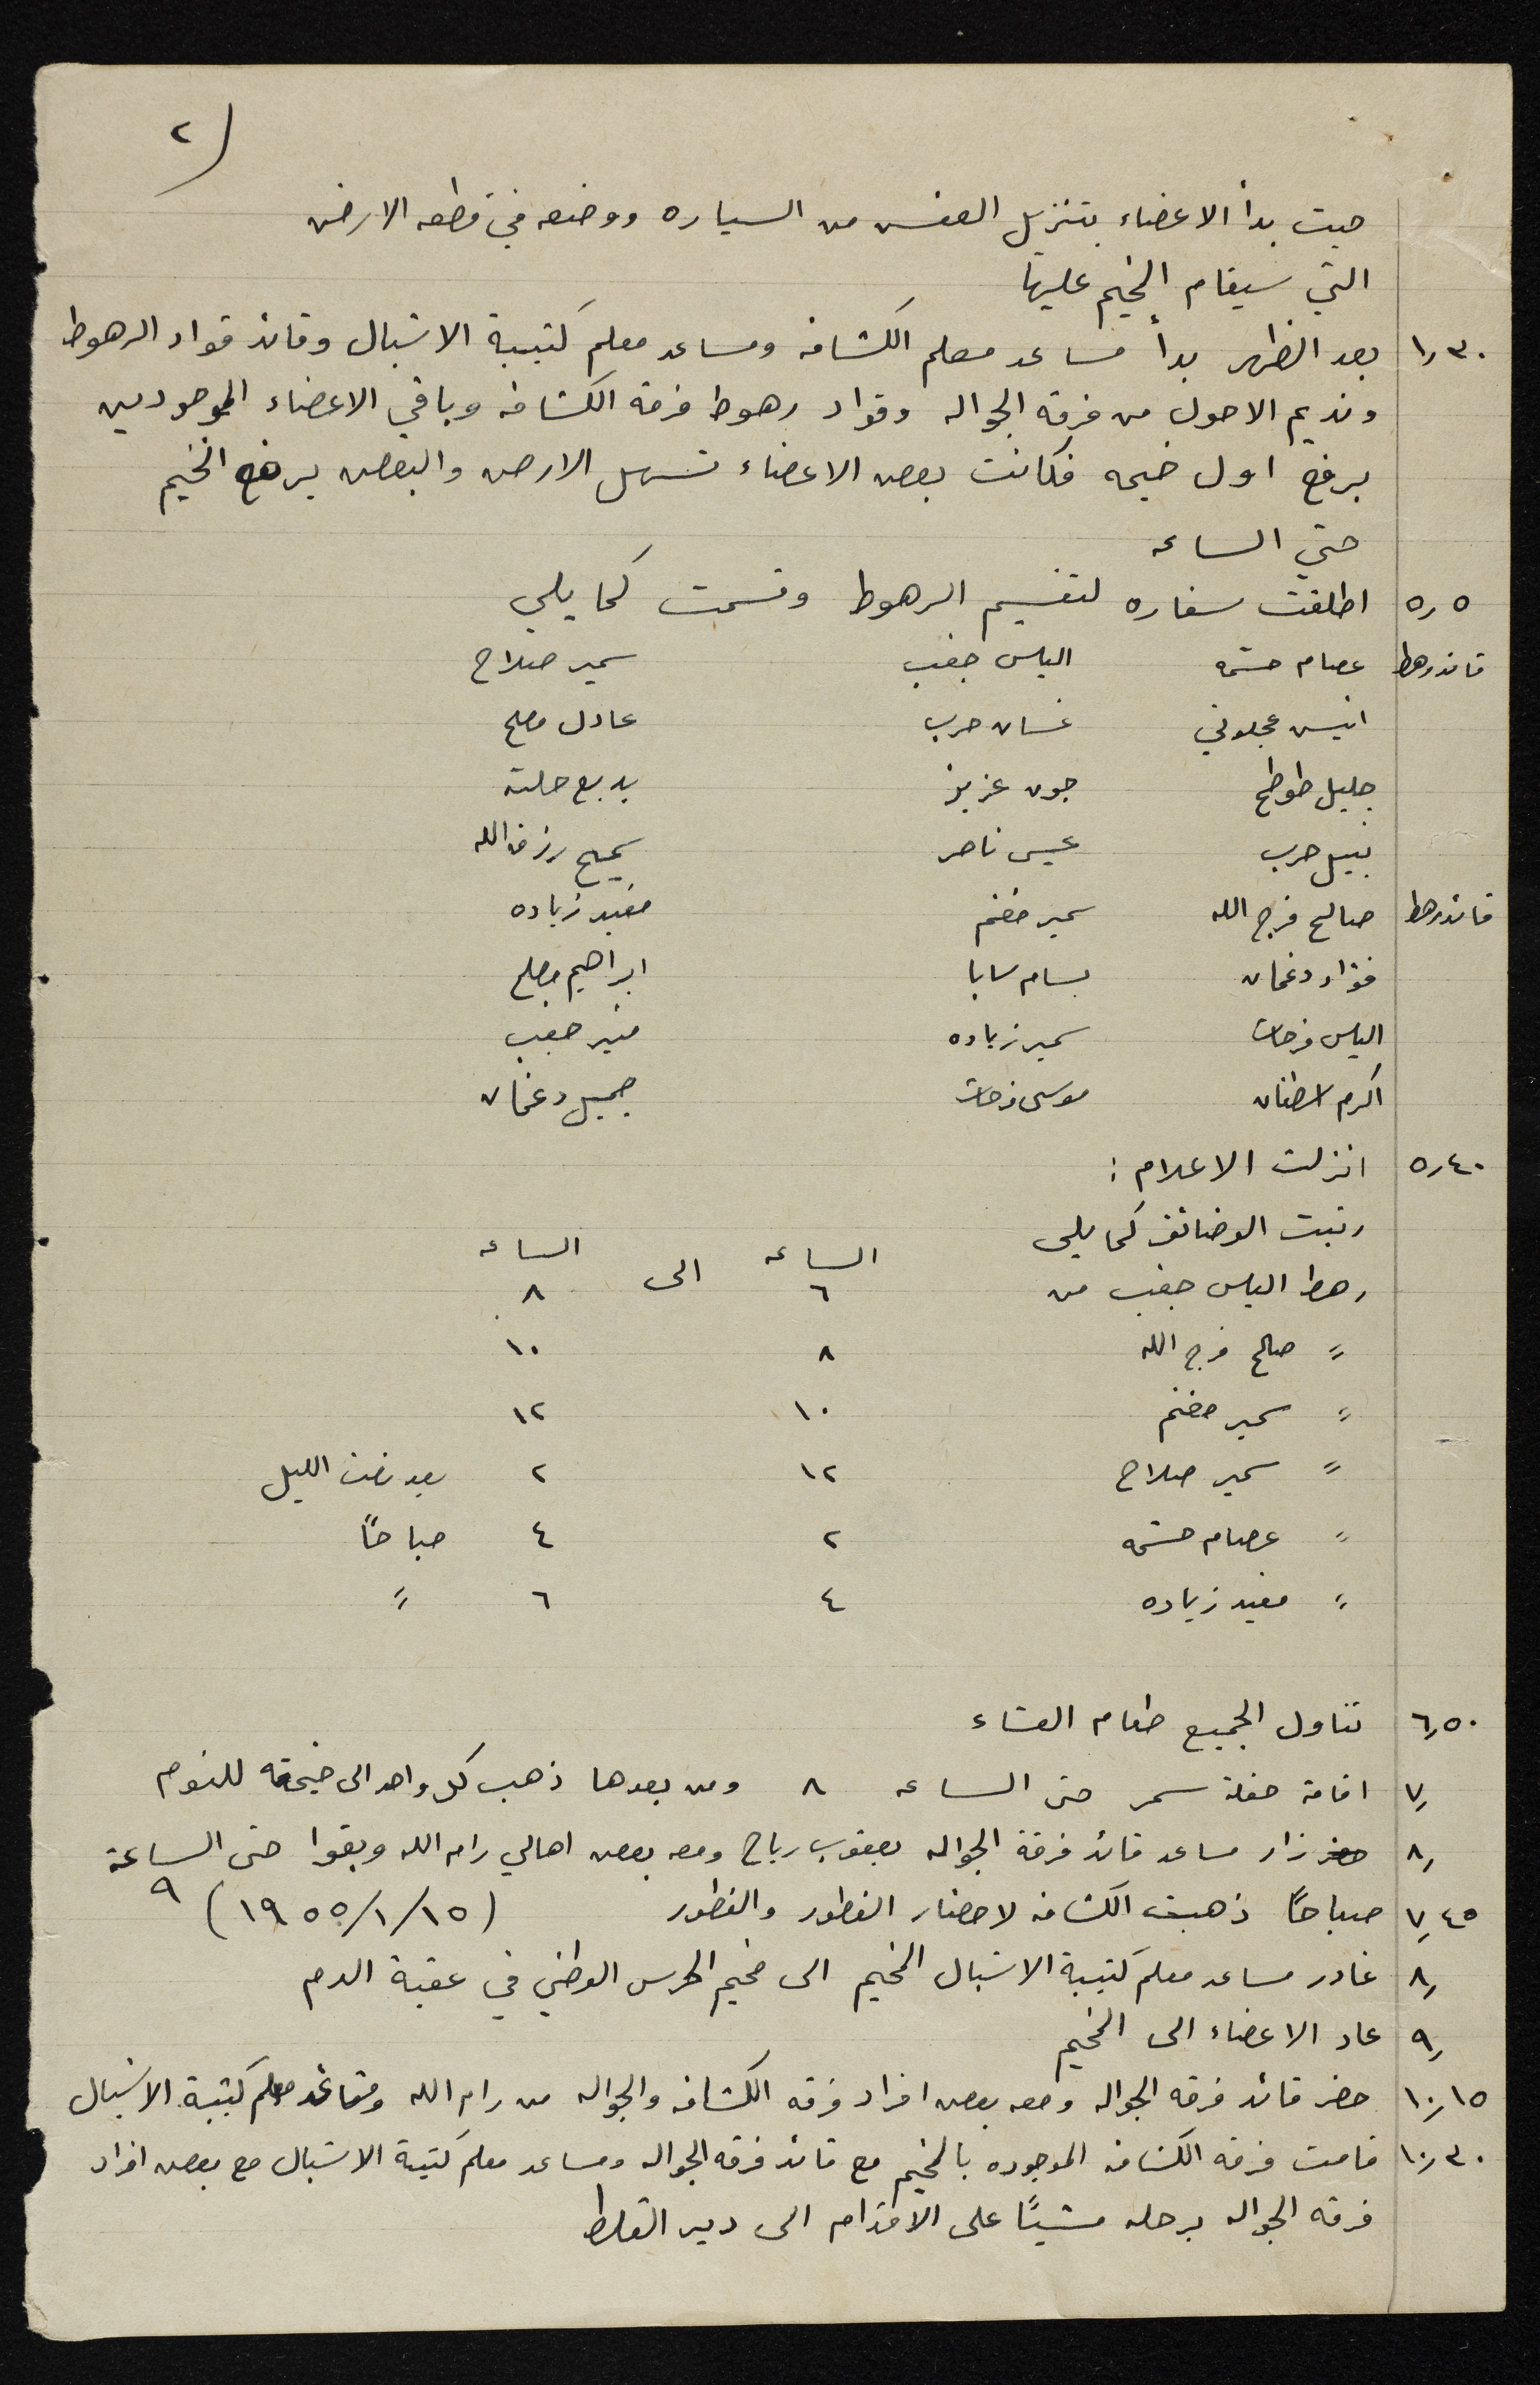 ٢)
حيث بدأ الاعضاء بتنزيل العفش من السياره ووضعه في قطعه الارض
التي سيقام المخيم عليها
١٫٣٠ بعد الظهر بدأ مساعد معلم الكشافه ومساعد معلم كتيبة الاشبال وقائد قواد الرهوط
ونديم الاحول من فرقه الجواله وقواد رهوط فرقة الكشافه وباقي الاعضاء الموجودين
برفع اول خيمه فكانت بعض الاعضاء تسهل الارض والبعض يرفع الخيم
حتي الساعه
٥٫٥ اطلقت سفاره لتقسيم الرهوط وقسمت كما يلي
قائد رهط عصام حشمه الياس جغب سمير صلاح
انيس عجلوني غسان حرب عادل مصلح
جليل طوطح جون عزيز بديع حلته
نبيل حرب عيسى ناصر سميح رزق الله
قائد رهط صالح فرج الله سمير مغنم مفيد زياده
فؤاد دغمان بسام سابا ابراهيم مصلح
الياس فرحات سمير زياده منير جغب
اكرم اسطفان موسى فرحات جميل دغمان
٥٫٤٠ انزلت الاعلام :
رتبت الوضائف كما يلي
الساعه الى الساعه
رهط الياس جغب من ٦ ٨
〃 صالح فرج الله ٨ ١٠
〃 سمير مغنم ١٠ ١٢
〃 سمير صلاح ١٢ ٢ بعد نصف الليل
〃 عصام حشمه ٢ ٤ صباحاً
〃 مفيد زياده ٤ ٦ 〃
٦٫٥٠ تناول الجميع طعام العشاء
٧٫ اقامة حفلة سمر حتى الساعه ٨ ومن بعدها ذهب كل واحد الى خيمته للنوم
٨٫ حضر زار مساعد قائد فرقة الجواله يعقوب رباح ومعه بعض اهالي رام الله وبقوا حتى الساعة ٩
٧٫٤٥ صباحاً ذهبت الكشافه لاحضار الفطور والفطور (١٥/١/١٩٥٥)
٨٫ غادر مساعد معلم كتيبة الاشبال المخيم الى مخيم الحرس الوطني في عقبة الدم
٩٫ عاد الاعضاء الى المخيم
١٠٫١٥ حضر قائد فرقه الجواله ومعه بعض افراد فرقه الكشافه والجواله من رام الله معلم كتيبة الاشبال
١٠٫٣٠ قامت فرقه الكشافه الموجوده بالمخيم مع قائد فرقه الجواله ومساعد معلم كتيبة الاشبال مع بعض افراد
فرقه الجواله برحله مشياً على الاقدام الى دير القلط